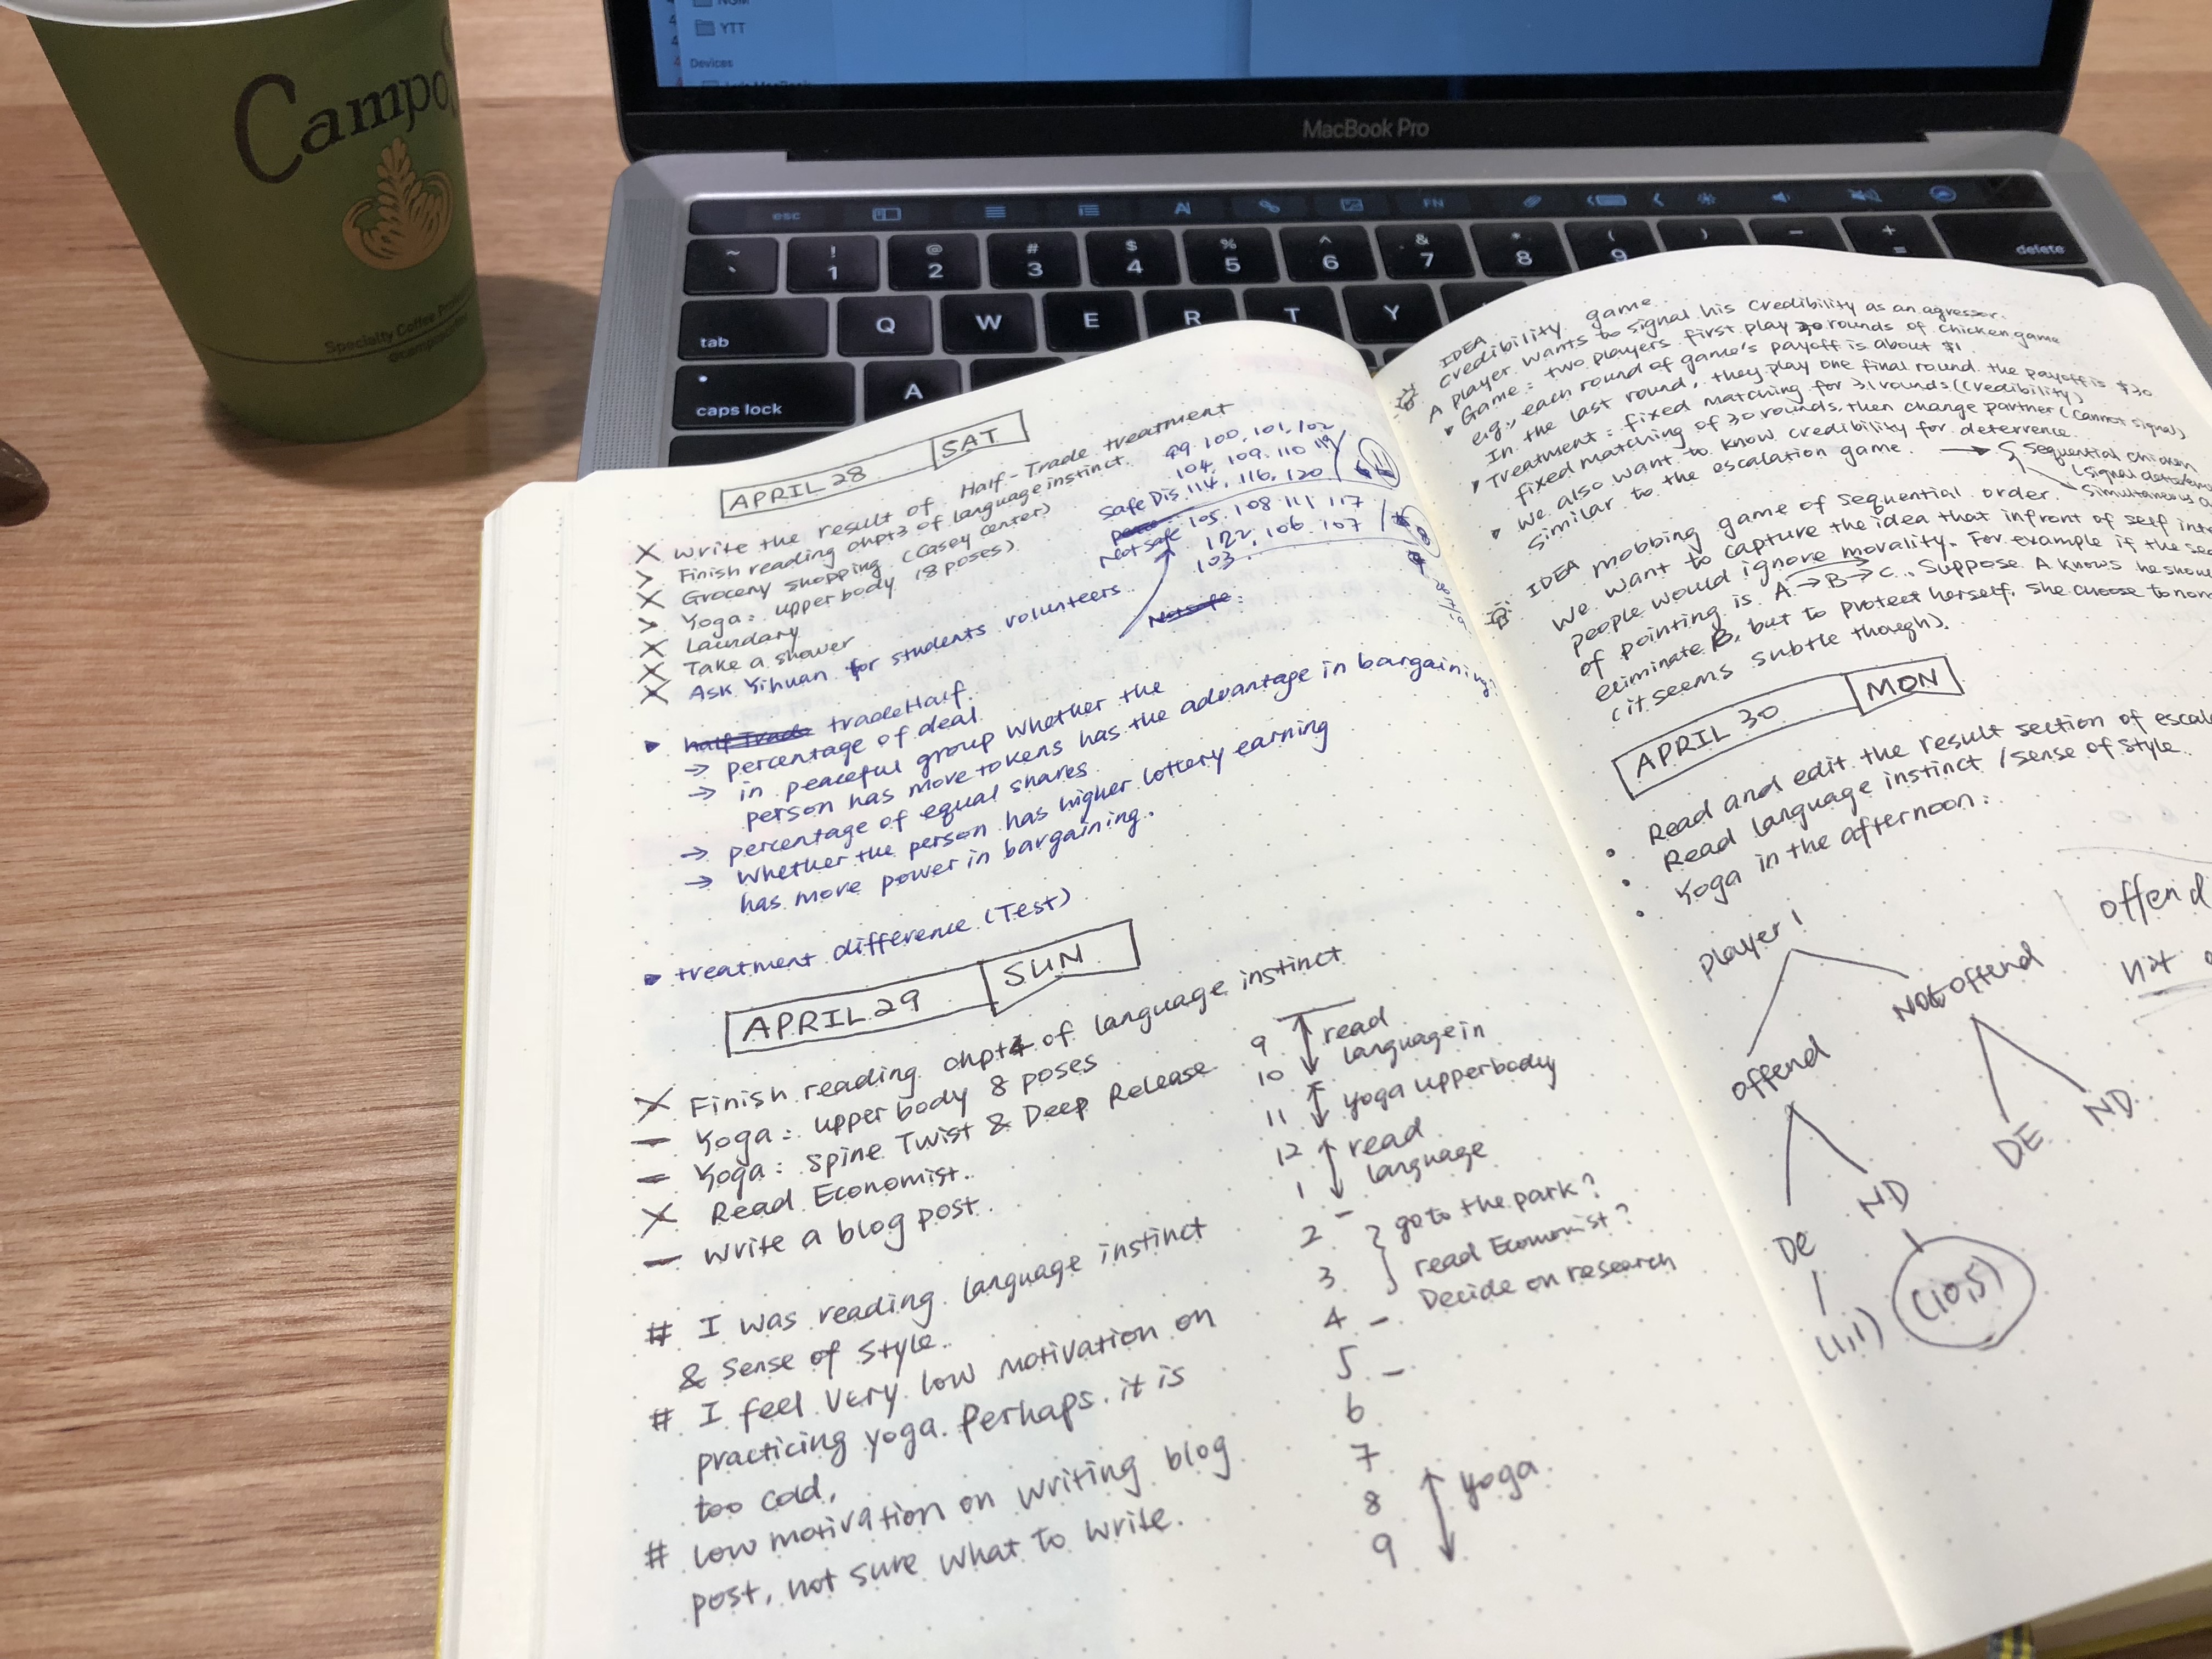 Campos
Specialty Coffee
NGM
YTT
Devices
MacBook Pro
esc
FN
~ ` ! 1 @ 2 # 3 $ 4 % 5 ^ 6 & 7 * 8 ( 9 ) - + = delete
tab Q W E R T Y
caps lock A
APRIL 28 SAT
X Write the result of Half-Trade treatment
> Finish reading chpt3 of language instinct.
X Grocery shopping (Casey Center)
> Yoga: upper body 18 poses)
X Laundary
X Take a shower
X Ask Yihuan for students volunteers
99. 100, 101, 102
104, 109, 110 119
Safe Dis 114, 116, 120
Not safe 105. 108 111 117
122, 106, 107
103
Not safe:
half Trade tradeHalf.
→ percentage of deal
→ in peaceful group whether the
person has more tokens has the advantage in bargaining.
→ percentage of equal shares
→ whether the person has higher lottery earning
has more power in bargaining.
treatment difference (Test)
APRIL 29 SUN
X Finish reading chpt4 of language instinct
— Yoga: upper body 8 poses
— Yoga: Spine Twist & Deep Release
X Read Economist.
— write a blog post.
# I was reading language instinct
& Sense of Style.
# I feel very low motivation on
practicing yoga. Perhaps. it is
too cold,
# low motivation on writing blog
post, not sure what to write.
9 read
language in
10
11 yoga upperbody
12 read
language
1
2 go to the park?
3 read Economist?
4 - Decide on research
5 -
6
7
8 yoga
9
IDEA
Credibility game
A player wants to signal his credibility as an agressor.
Game: two players first play 30 rounds of chicken game
e.g., each round of game's payoff is about $1.
In the last round, they play one final round. the payoff is $30
Treatment: fixed matching for 31 rounds (credibility)
fixed matching of 30 rounds, then change partner (cannot signal)
we also want to know credibility for deterrence.
similar to the escalation game. → Sequential chicken
(signal
Simultaneous
IDEA mobbing game of sequential order.
We want to capture the idea that infront of self
people would ignore morality. For example if the
of pointing is A→B→C. Suppose A knows he
eliminate B, but to protect herself, she choose to
(it seems subtle though).
APRIL 30 MON
• Read and edit the result section of
• Read language instinct / sense of style.
• Yoga in the afternoon:
player 1
offend
Not offend
offend
not
DE ND
DE ND
(1,1) (10,5)